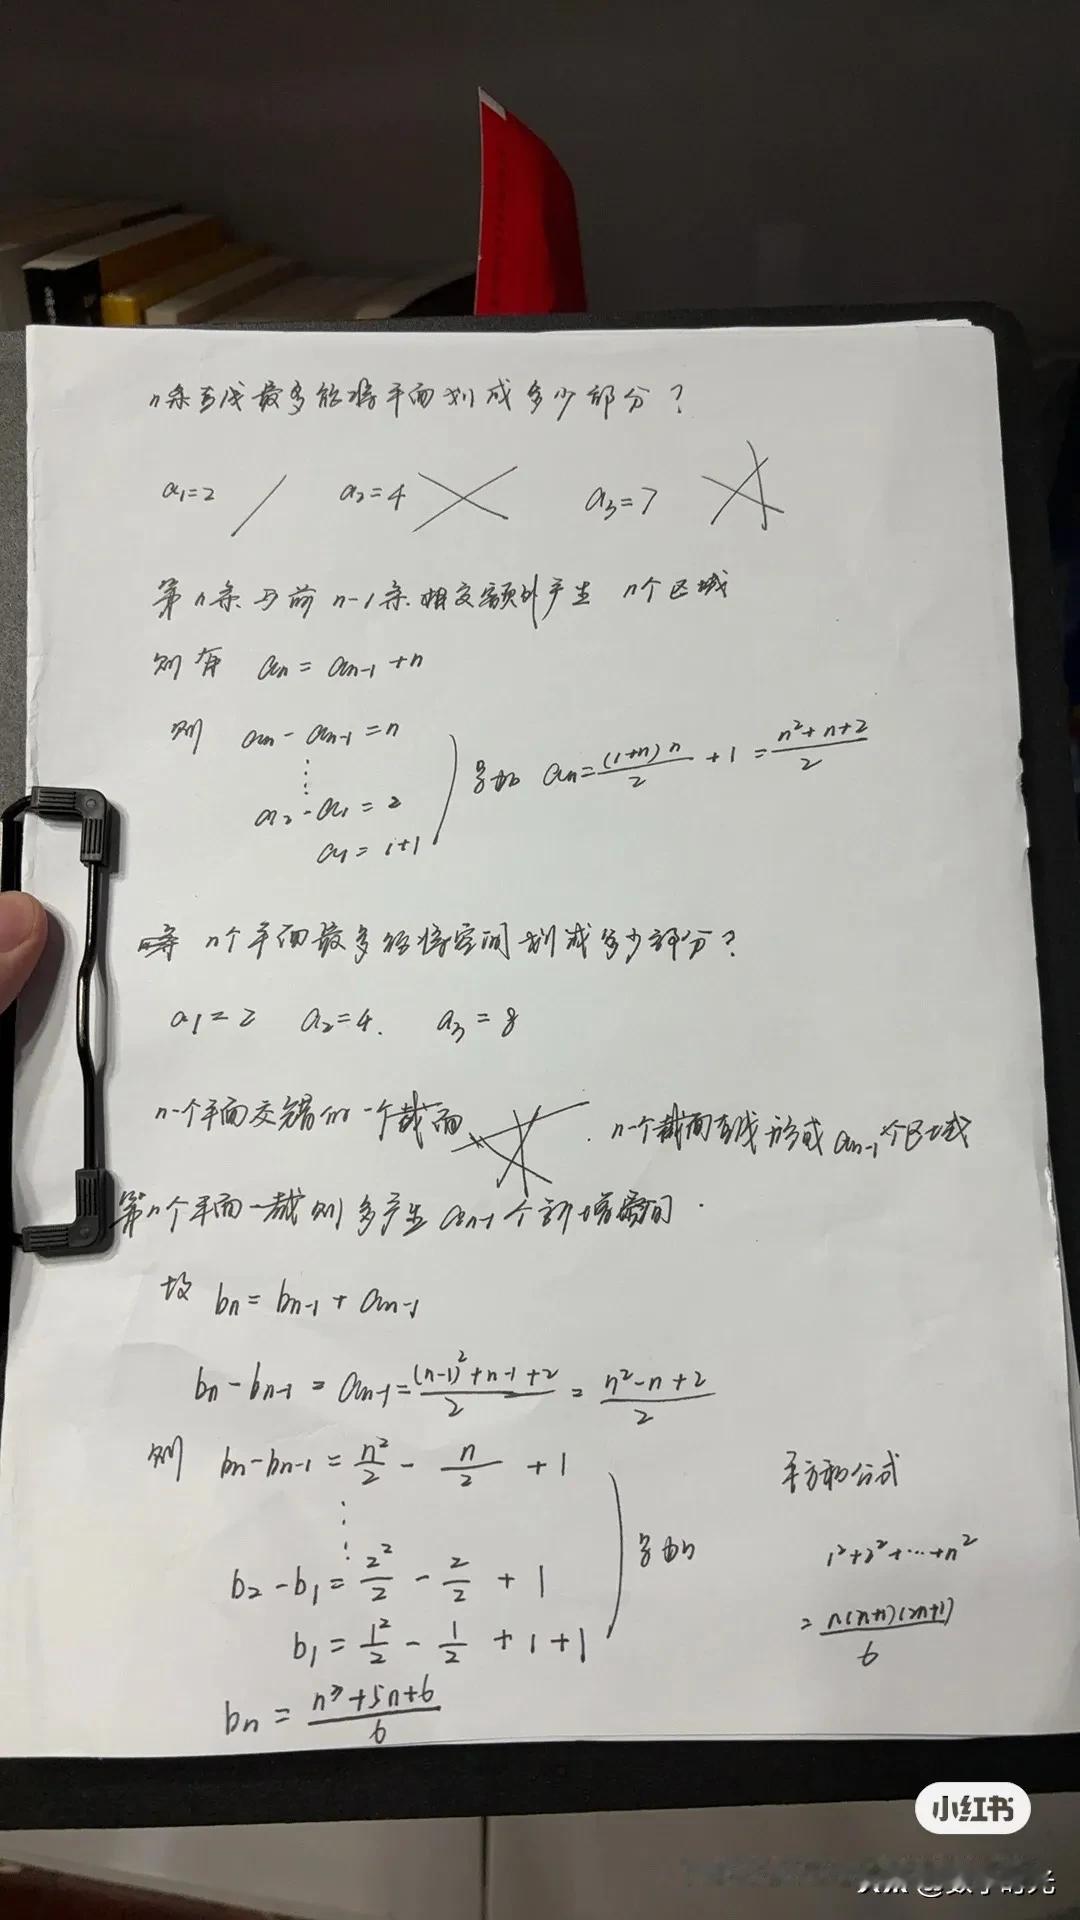 n条直线最多能将平面划成多少部分？
a₁=2 a₂=4 a₃=7
第n条与前n-1条相交额外产生 n个区域
则有 aₙ = aₙ₋₁ + n
则 aₙ - aₙ₋₁ = n
⋮
a₂ - a₁ = 2
a₁ = 1+1
累加 aₙ = (1+n)n/2 + 1 = (n²+n+2)/2
n个平面最多能将空间划成多少部分？
a₁=2 a₂=4. a₃=8
n-1个平面交错的一个截面 . n-1个截面直线形成 aₙ₋₁个区域
第n个平面一截则多产生 aₙ₋₁个新增空间.
故 bₙ = bₙ₋₁ + aₙ₋₁
bₙ - bₙ₋₁ = aₙ₋₁ = ((n-1)²+n-1+2)/2 = (n²-n+2)/2
则 bₙ - bₙ₋₁ = n²/2 - n/2 + 1
⋮
b₂ - b₁ = 2²/2 - 2/2 + 1
b₁ = 1²/2 - 1/2 + 1 + 1
累加
bₙ = (n³+5n+6)/6
平方和公式
1²+2²+⋯+n²
= n(n+1)(2n+1)/6
小红书